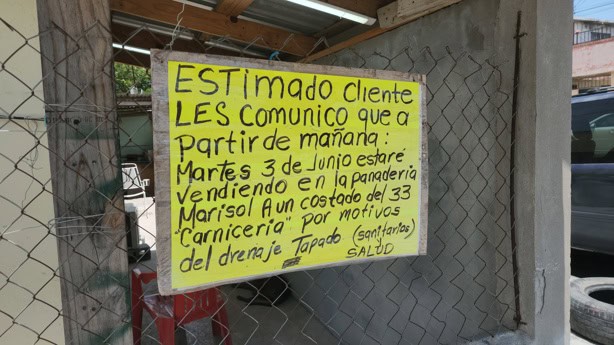 ESTIMADO cliente
LES COMUNICO que a
partir de mañana:
Martes 3 de Junio estaré
vendiendo en la panadería
Marisol A un costado del 33
"Carnicería" por motivos
del drenaje Tapado (sanitarios)
SALUD